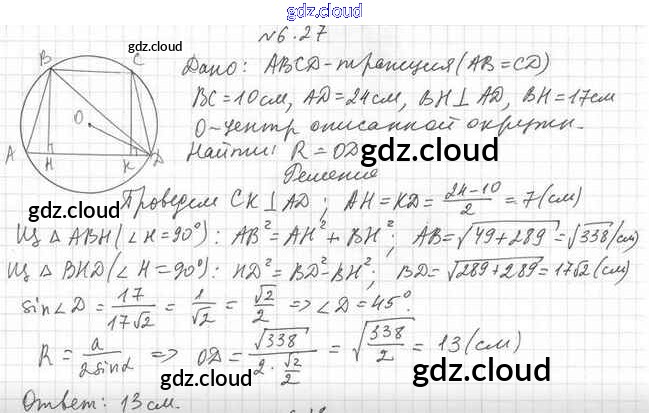 gdz.cloud
№6.27
gdz.cloud
Дано: ABCD-трапеция (AB=CD)
BC=10см, AD=24см, BH⊥AD, BH=17см
O-центр описанной окружн.
Найти: R=OD
gdz.cloud
Решение
B C O A H K D
gdz.cloud
Проведем CK⊥AD; AH=KD=(24-10)/2=7(см)
Из △ABH(∠H=90°): AB²=AH²+BH²; AB=√(49+289)=√338(см)
Из △BHD(∠H=90°): HD²=BD²-BH²; BD=√(289+289)=17√2(см)
sin∠D=17/(17√2)=1/√2=√2/2 ⇒ ∠D=45°.
gdz.cloud
R=a/(2sinα) ⇒ OD=√338/(2·√2/2)=√(338/2)=13(см)
gdz.cloud
Ответ: 13см.
gdz.cloud